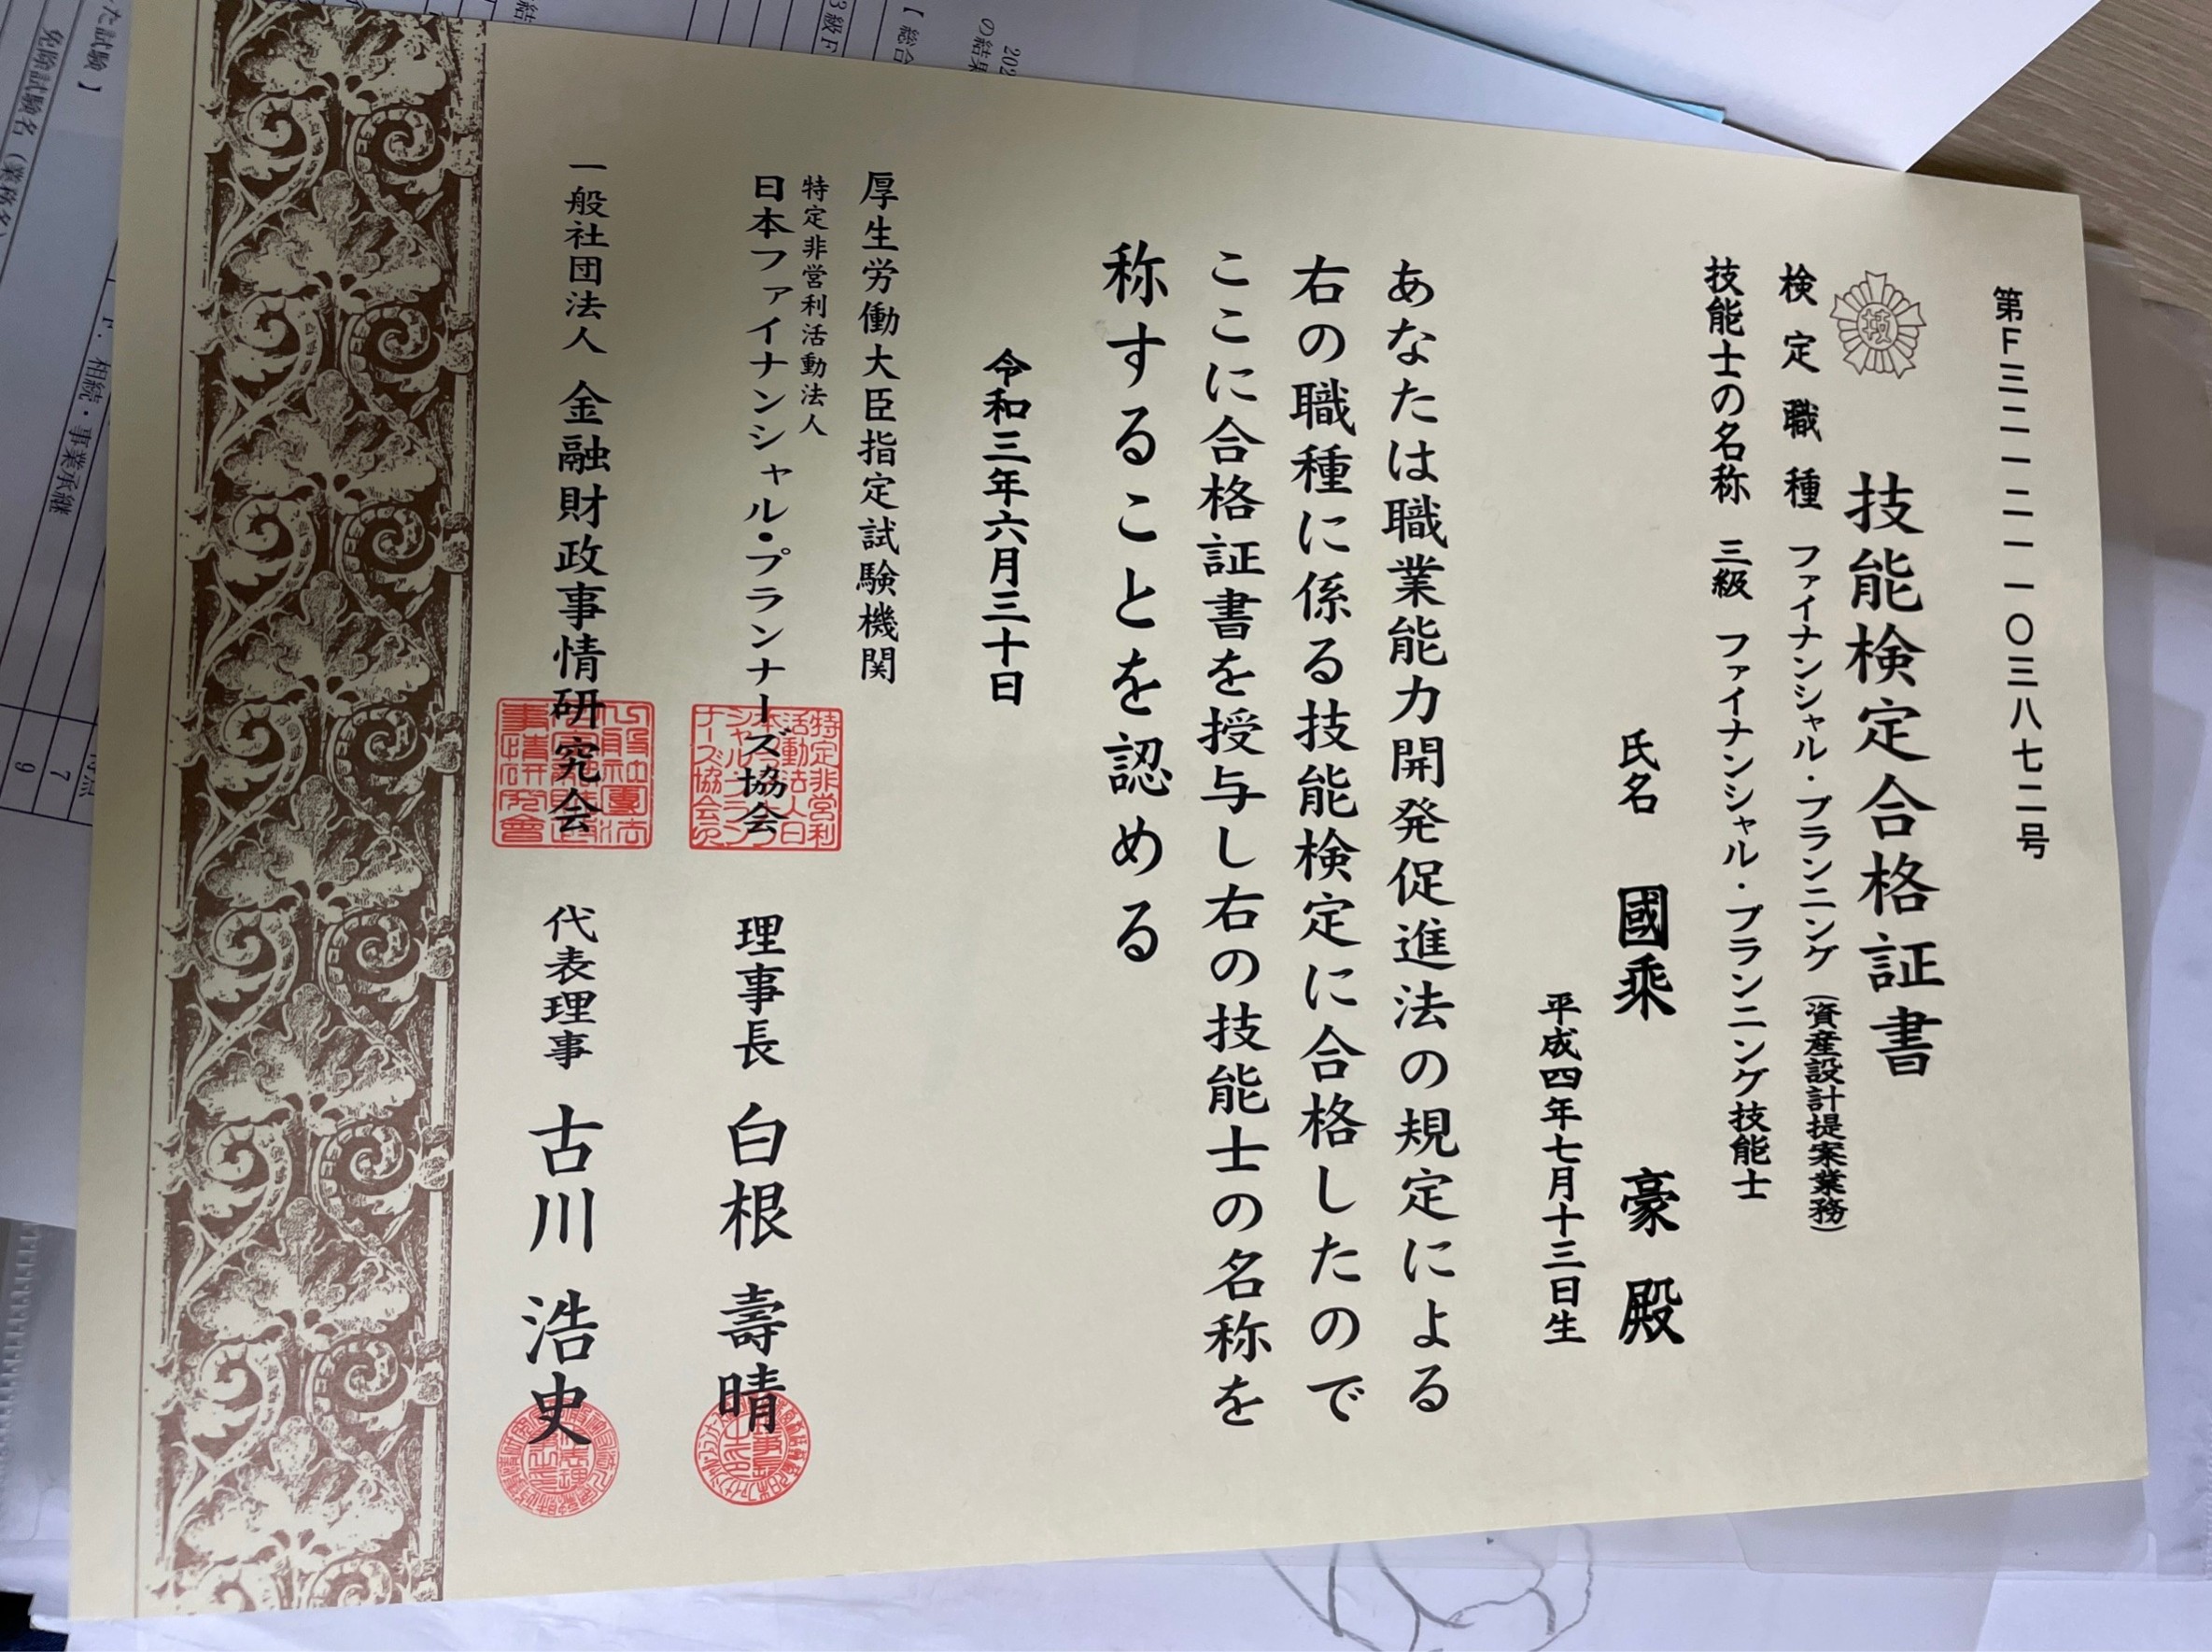 第F三二一二一一〇三八七二号
技
技能検定合格証書
検定職種 ファイナンシャル・プランニング（資産設計提案業務）
技能士の名称 三級 ファイナンシャル・プランニング技能士
氏名 國乘 豪 殿
平成四年七月十三日生
あなたは職業能力開発促進法の規定による
右の職種に係る技能検定に合格したので
ここに合格証書を授与し右の技能士の名称を
称することを認める
令和三年六月三十日
厚生労働大臣指定試験機関
特定非営利活動法人
日本ファイナンシャル・プランナーズ協会 理事長 白根 壽晴
一般社団法人 金融財政事情研究会 代表理事 古川 浩史
た試験 】
免除試験名（業務名）
F．相続・事業承継
7
9
3級F
【 総合
の結果
202